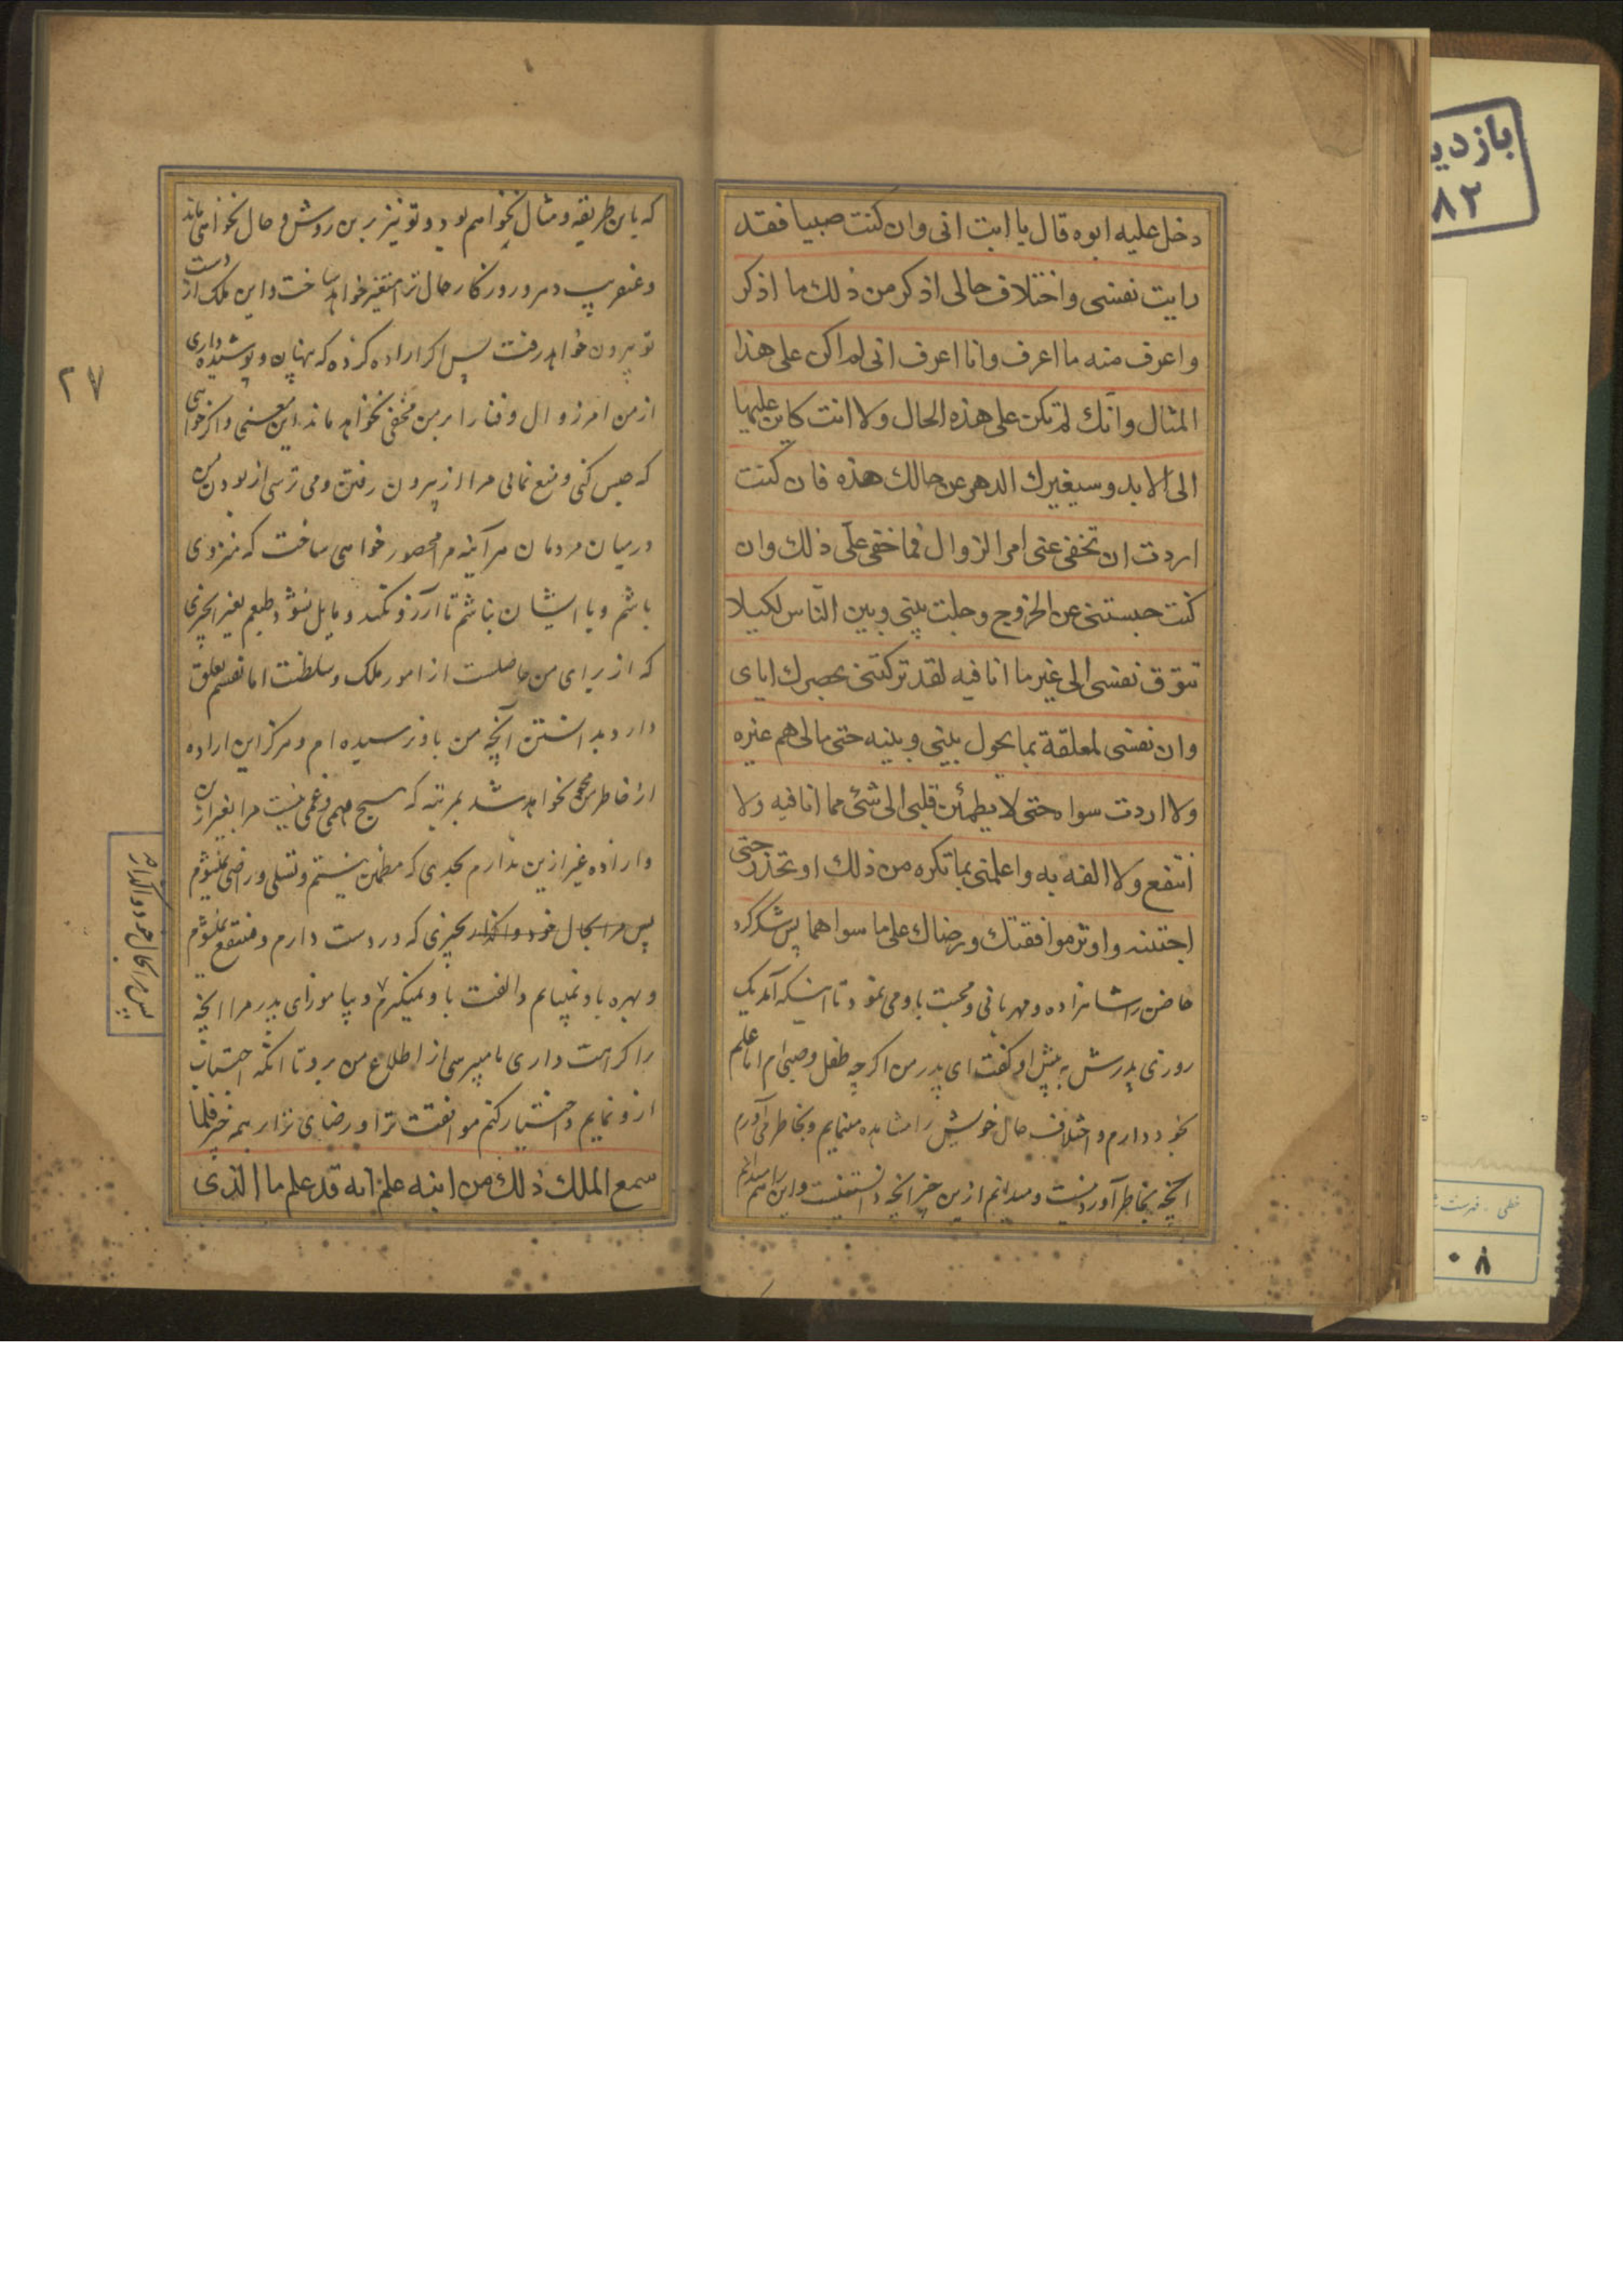 دخل عليه ابوه قال يا ابت انى وان كنت صبيا فقد
رايت نفسى واختلاف حالى اذكر من ذلك ما اذكر
واعرف منه ما اعرف وانا اعرف انى لم اكن على هذا
المثال وانّك لم تكن على هذه الحال ولا انت كاين عليها
الى الابد وسيغيرك الدهر عن حالك هذه فان كنت
اردت ان تخفى عنى امر الزوال فما خفى علّى ذلك وان
كنت حبستنى عن الخروج وحلت بينى وبين النّاس لكيلا
تتوّق نفسى الى غير ما انا فيه لقد تركتنى بحصرك اياى
وان نفسى لمعلقة بما يحول بينى وبينه حتى مالى هم غيره
ولا اردت سواه حتى لا يطمئن قلبى الى شئ مما انا فيه ولا
انتفع ولا الفه به واعلمنى بما تكره من ذلك او تحذر حتى
اجتنبه واوثر موافقتك ورضاك على ما سواهما پس شکر کرد
حاضن را شاهزاده و مهربانی و محبت باو می نمود تا اینکه آمد یک
روزی پدرش به پیش او گفت ای پدر من اگرچه طفل و صبی ام اما علم
بخود دارم و اختلاف حال خویش را مشاهده مینمایم و بخاطر می آورم
آنچه بخاطر آوردنیست و میدانم ازین خبر آنچه دانستنیست و این را هم میدانم
که باین طریقه و مثال نخواهم بود و تو نیز برین روش و حال نخواهی ماند
و عنقریب دهر و روزگار حال ترا متغیر خواهد ساخت و این ملک از دست
تو بیرون خواهد رفت پس اگر اراده کرده که پنهان و پوشیده داری
از من امر زوال و فنا را بر من مخفی نخواهد ماند این معنی و اگر خواهی
که حبس کنی و منع نمائی مرا از بیرون رفتن و می ترسی از بودن من
در میان مردمان هر آینه مرا محصور خواهی ساخت که منزوی
باشم و با ایشان نباشم تا آرزو نکند و مایل نشود طبعم بغیر اچیزی
که از برای من حاصلست از امور ملک و سلطنت اما نفسم تعلق
دارد بدانستن آنچه من باو نرسیده ام و هرگز این اراده
از خاطر من محو نخواهد شد بمرتبه که هیچ مهمی و غمی نیست مرا بغیر از آن
و اراده غیر ازین ندارم بحدی که مطمئن نیستم و تسلی و راضی نمیشوم
پس مرا بحال خود واگذار بچیزی که در دست دارم و منتفع نمیشوم
و بهره باو نمییابم و الفت باو نمیگیرم و بیاموز ای پدر مرا آنچه
را کراهت داری یا میپرسی از اطلاع من برو تا آنکه اجتناب
ازو نمایم و اختیار کنم موافقت ترا و رضای ترا بر همه چیز فلمّا
سمع الملك ذلك من ابنه علم انه قد علم ما الذى
پس مرا بحال خود واگذار
۲۷
بازدید
۸۲
خطی . فهرست
۰۸